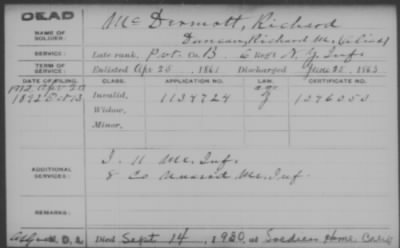 DEAD
NAME OF SOLDIER: McDermott, Richard
Duncan, Richard Mc. (alias)
SERVICE: Late rank, Pvt. Co. B. 6 Regt. N.Y. Inf.
TERM OF SERVICE: Enlisted Apr 25, 1861 Discharged June 25, 1863
DATE OF FILING. CLASS. APPLICATION NO. LAW. CERTIFICATE NO.
1892 Oct 13 Invalid, 1134724
Widow,
Minor,
ADDITIONAL SERVICES:
8 Co Unassd
REMARKS:
Died Sept 14, 1920, at Soldiers Home